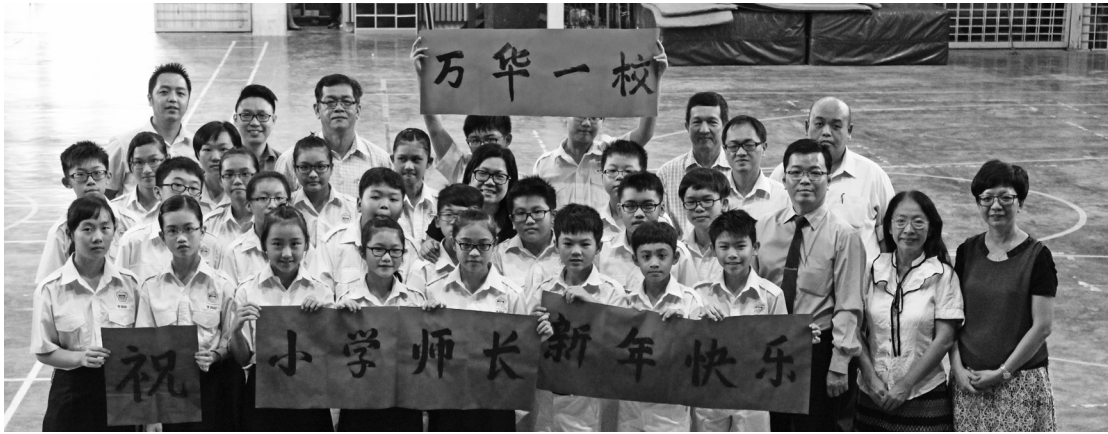 万华一校
祝小学师长新年快乐